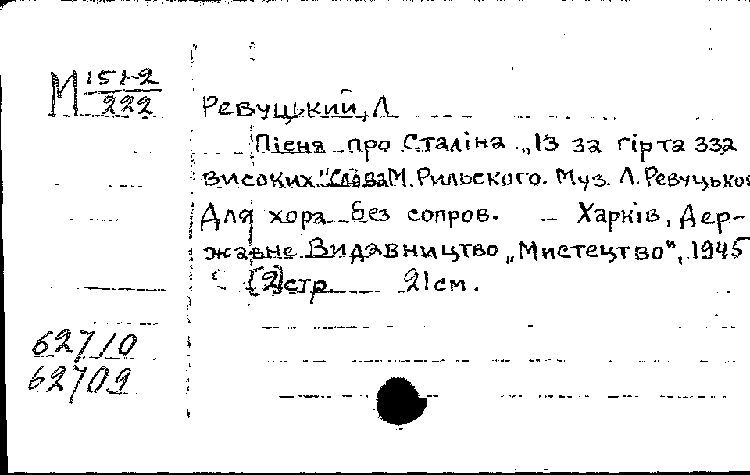 М 151-2
222
Ревуцький, Л
Пісня про Сталіна „Із за гір та зза
високих" Слова М. Рильского. Муз. Л. Ревуцьког
Для хора без сопров. – Харків, Дер-
жавне Видавництво „Мистецтво", 1945
(2) стр. 21 см.
62710
62709